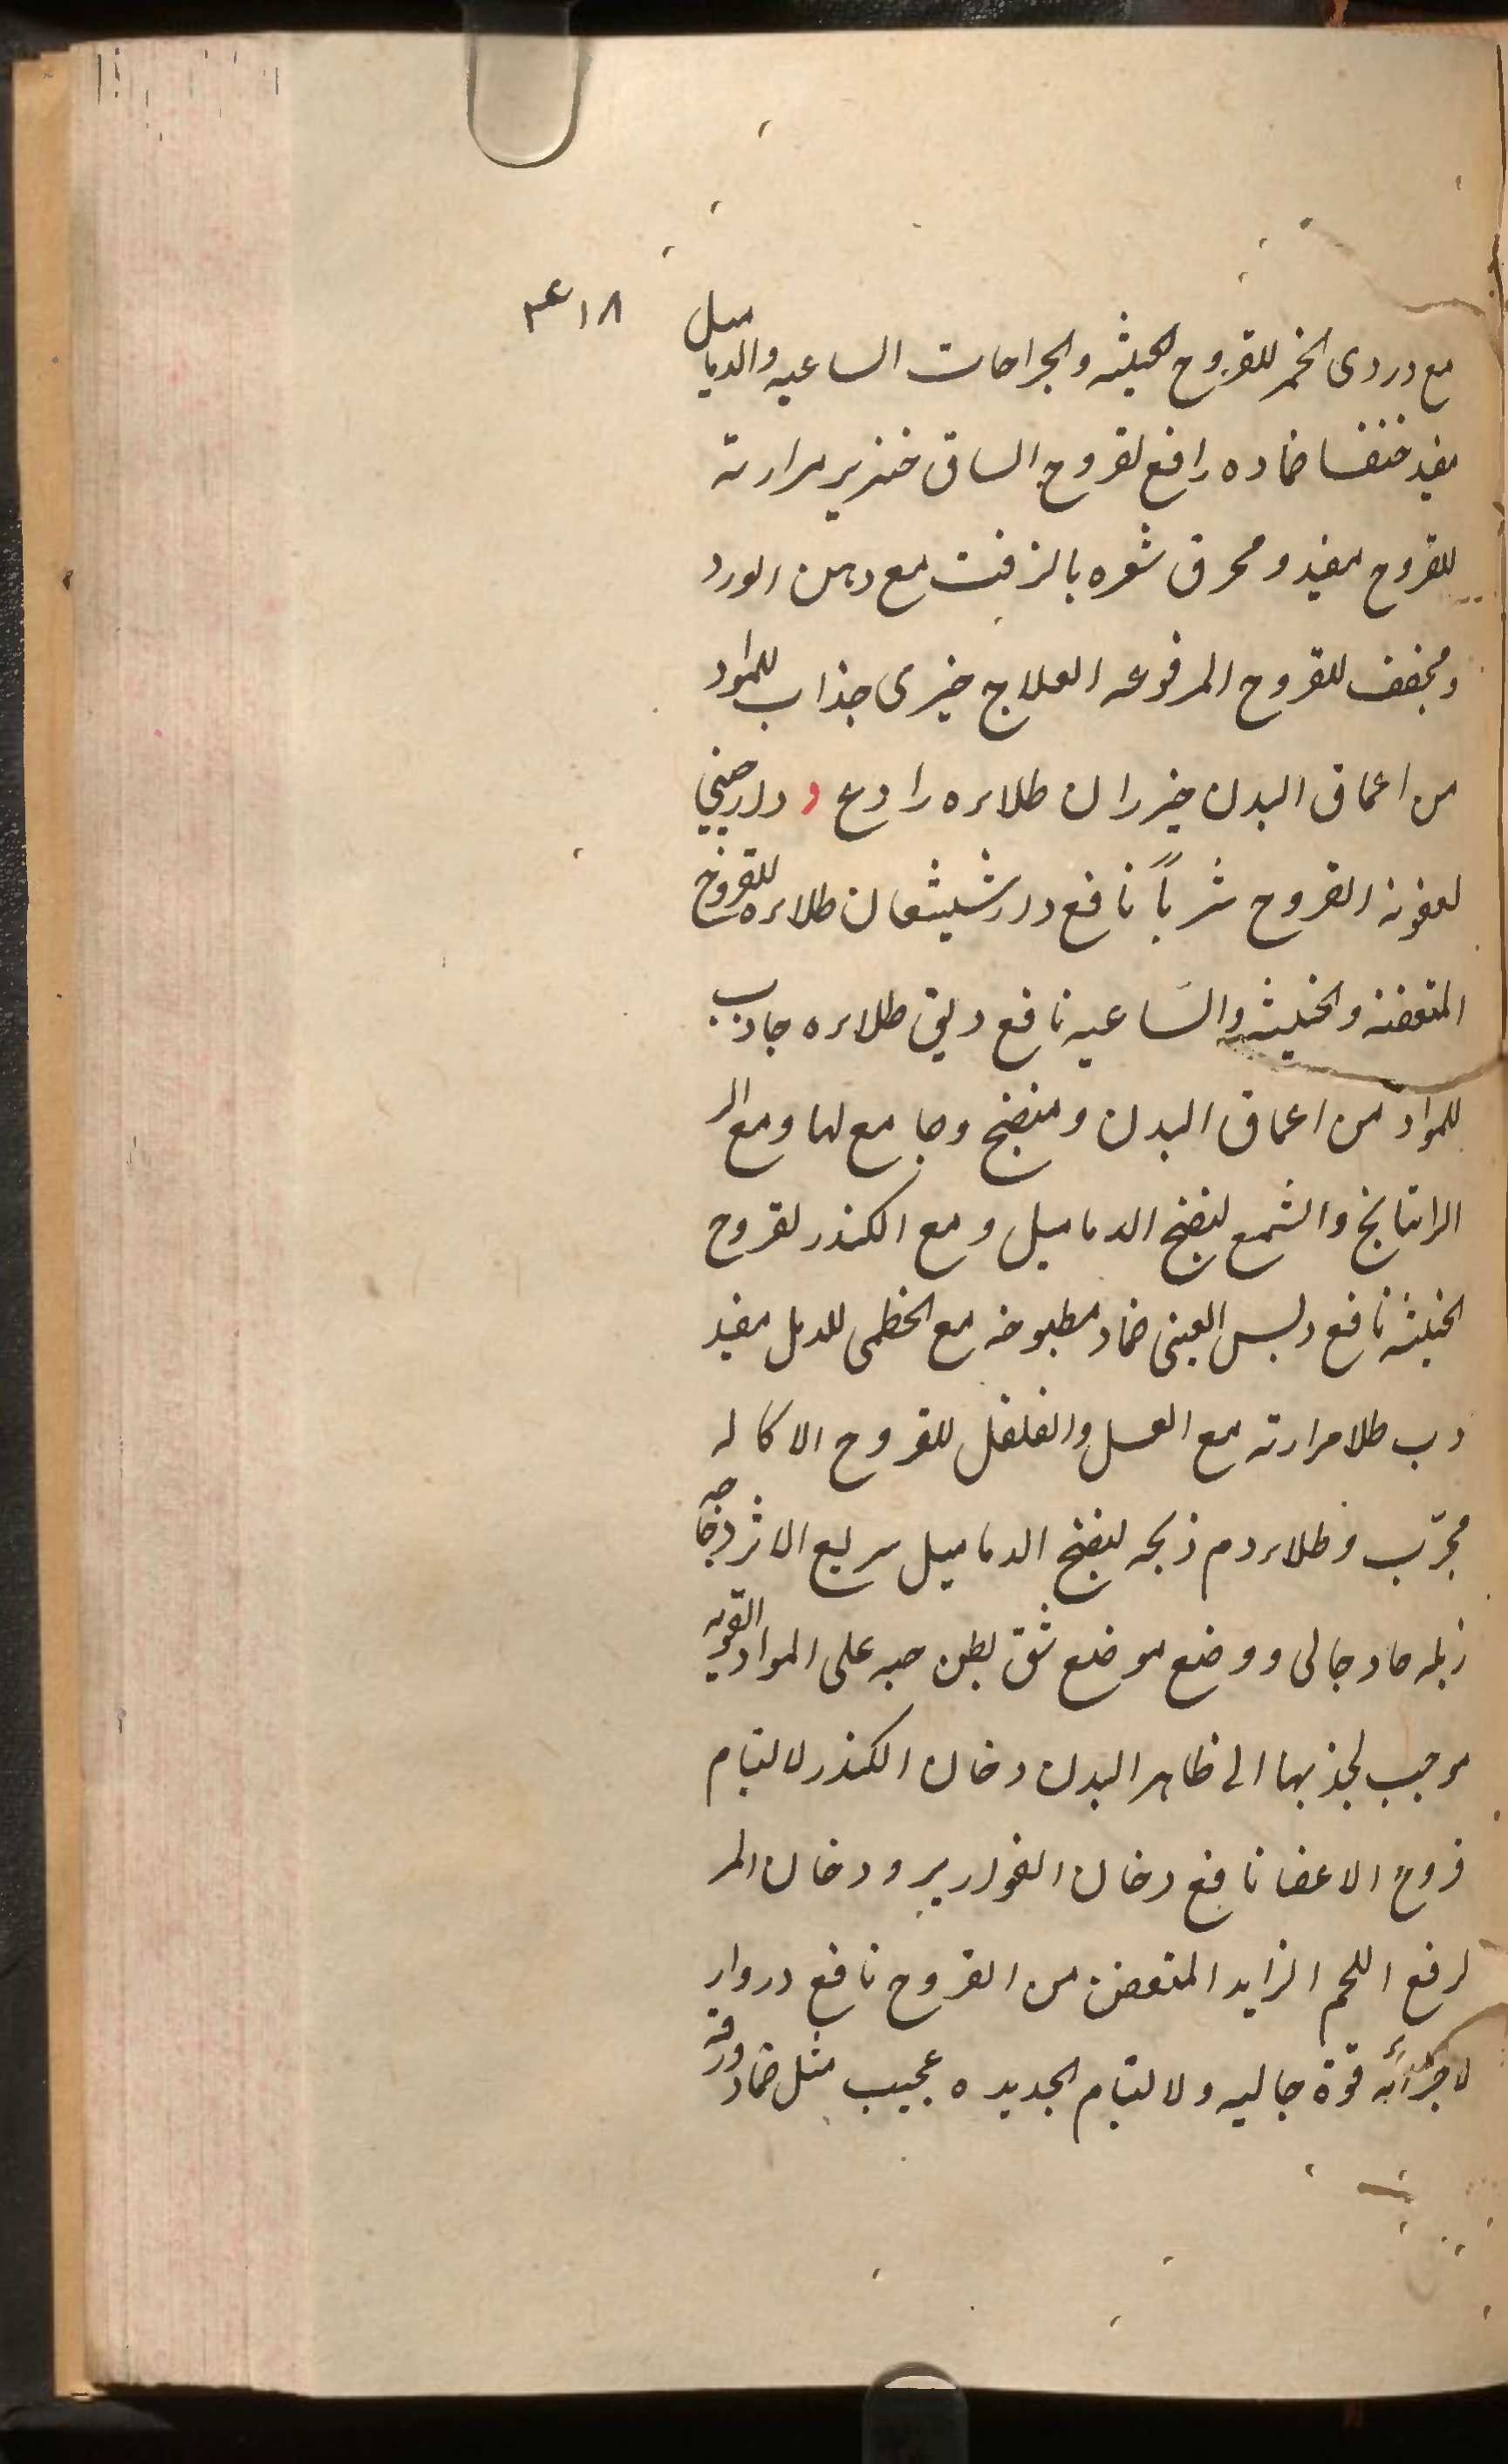 ۴۱۸
مع دردی الخمر للقروح الخبیثه والجراحات الساعیه والدمامیل
مفید خنفسا ضماده رافع لقروح الساق خنزیر مرارته
للقروح مفید و محرق شعره بالزفت مع دهن الورد
ومجفف للقروح المرفوعه العلاج خیری جذاب للمواد
من اعماق البدن خیزران طلاءه رادع د دارصینی
لعفونه القروح شرباً نافع دارشیشعان طلاءه للقروح
المتعفنه والخبیثه والساعیه نافع دبق طلاءه جاذب
للمواد من اعماق البدن ومنضج وجامع لها ومع الر
الراتیانج والشمع لنضج الدمامیل ومع الکندر لقروح
الخبیثه نافع دبس العنبی ضماد مطبوخه مع الخطمی للدمل مفید
دب طلا مرارته مع العسل والفلفل للقروح الاکاله
مجرّب وطلاء دم ذبحه لنضج الدمامیل سریع الاثر دجاجه
زبله حاد جالی ووضع موضع شق بطن حیه علی المواد القویه
موجب لجذبها الی ظاهر البدن دخان الکندر لالتیام
قروح الاعضا نافع دخان القواریر ودخان المر
لرفع اللحم الزاید المتعفن من القروح نافع دردار
لاجزائه قوة جالیه ولالتیام الجدیده عجیب مثل ضماد ورقه